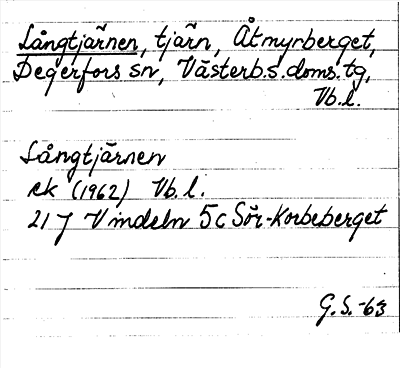 Långtjärnen, tjärn, Åtmyrberget,
Degerfors sn, Västerb.s.doms.tg,
Vb.l.
Långtjärnen
ek (1962) Vb.l.
21J Vindeln 5c Sör-Korbeberget
G.S.-63